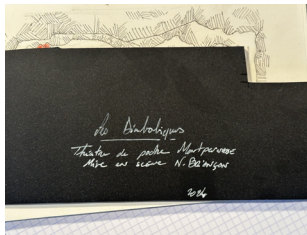 Les Diaboliques
Théâtre de poche Montparnasse
Mise en scène N. Briançon
2024